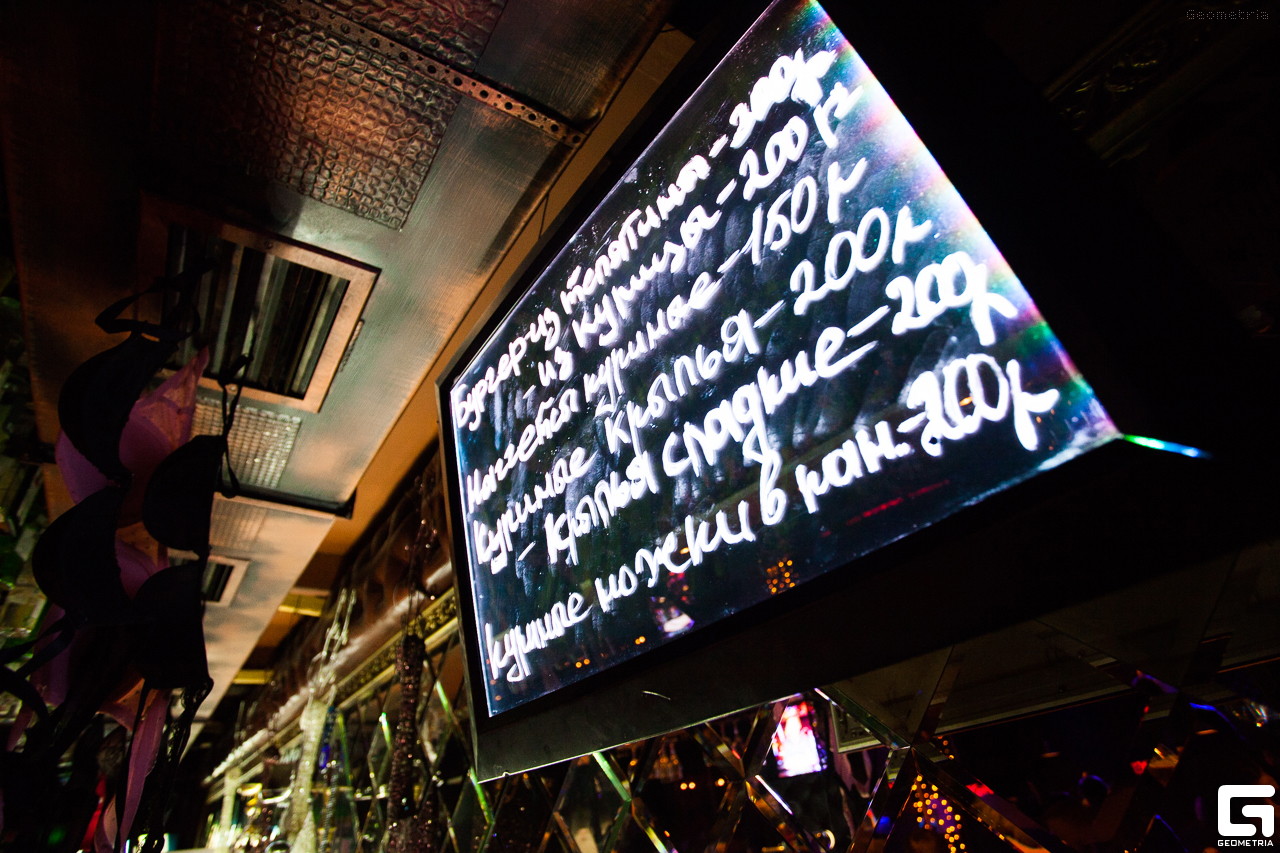 Geometria
Бургер-из телятины-300р
- из курицы-200р
Наггетсы куриные-150р
Куриные крылья-200р
- крылья сладкие-200р
куриные ножки в пан.-200р
GEOMETRIA